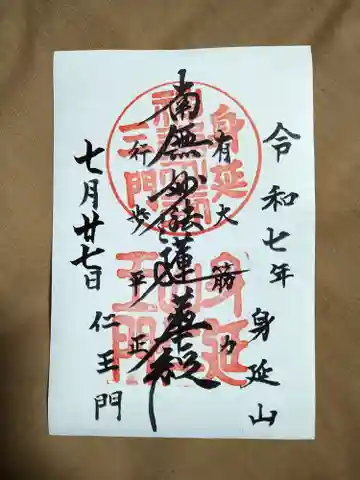 令和七年
身延山
有大勝力
南無妙法蓮華経
行歩平正
七月廿七日
仁王門
身延
三門
身延
王門